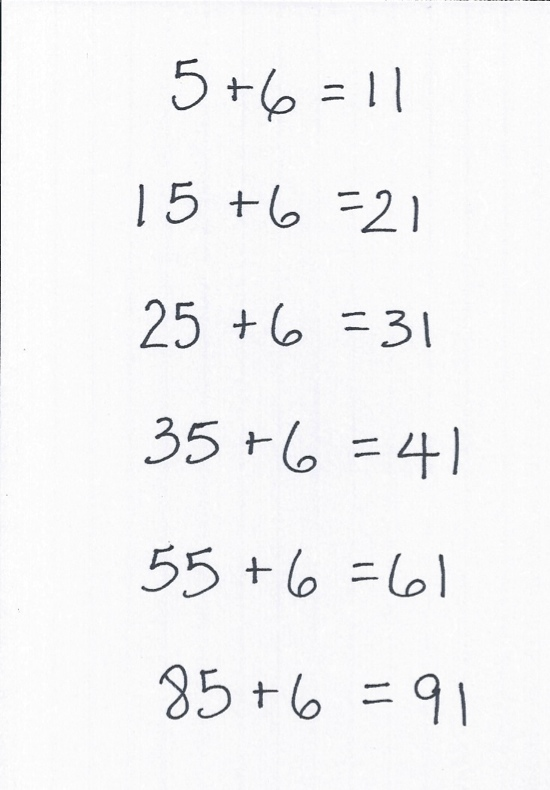 5 + 6 = 11
15 + 6 = 21
25 + 6 = 31
35 + 6 = 41
55 + 6 = 61
85 + 6 = 91